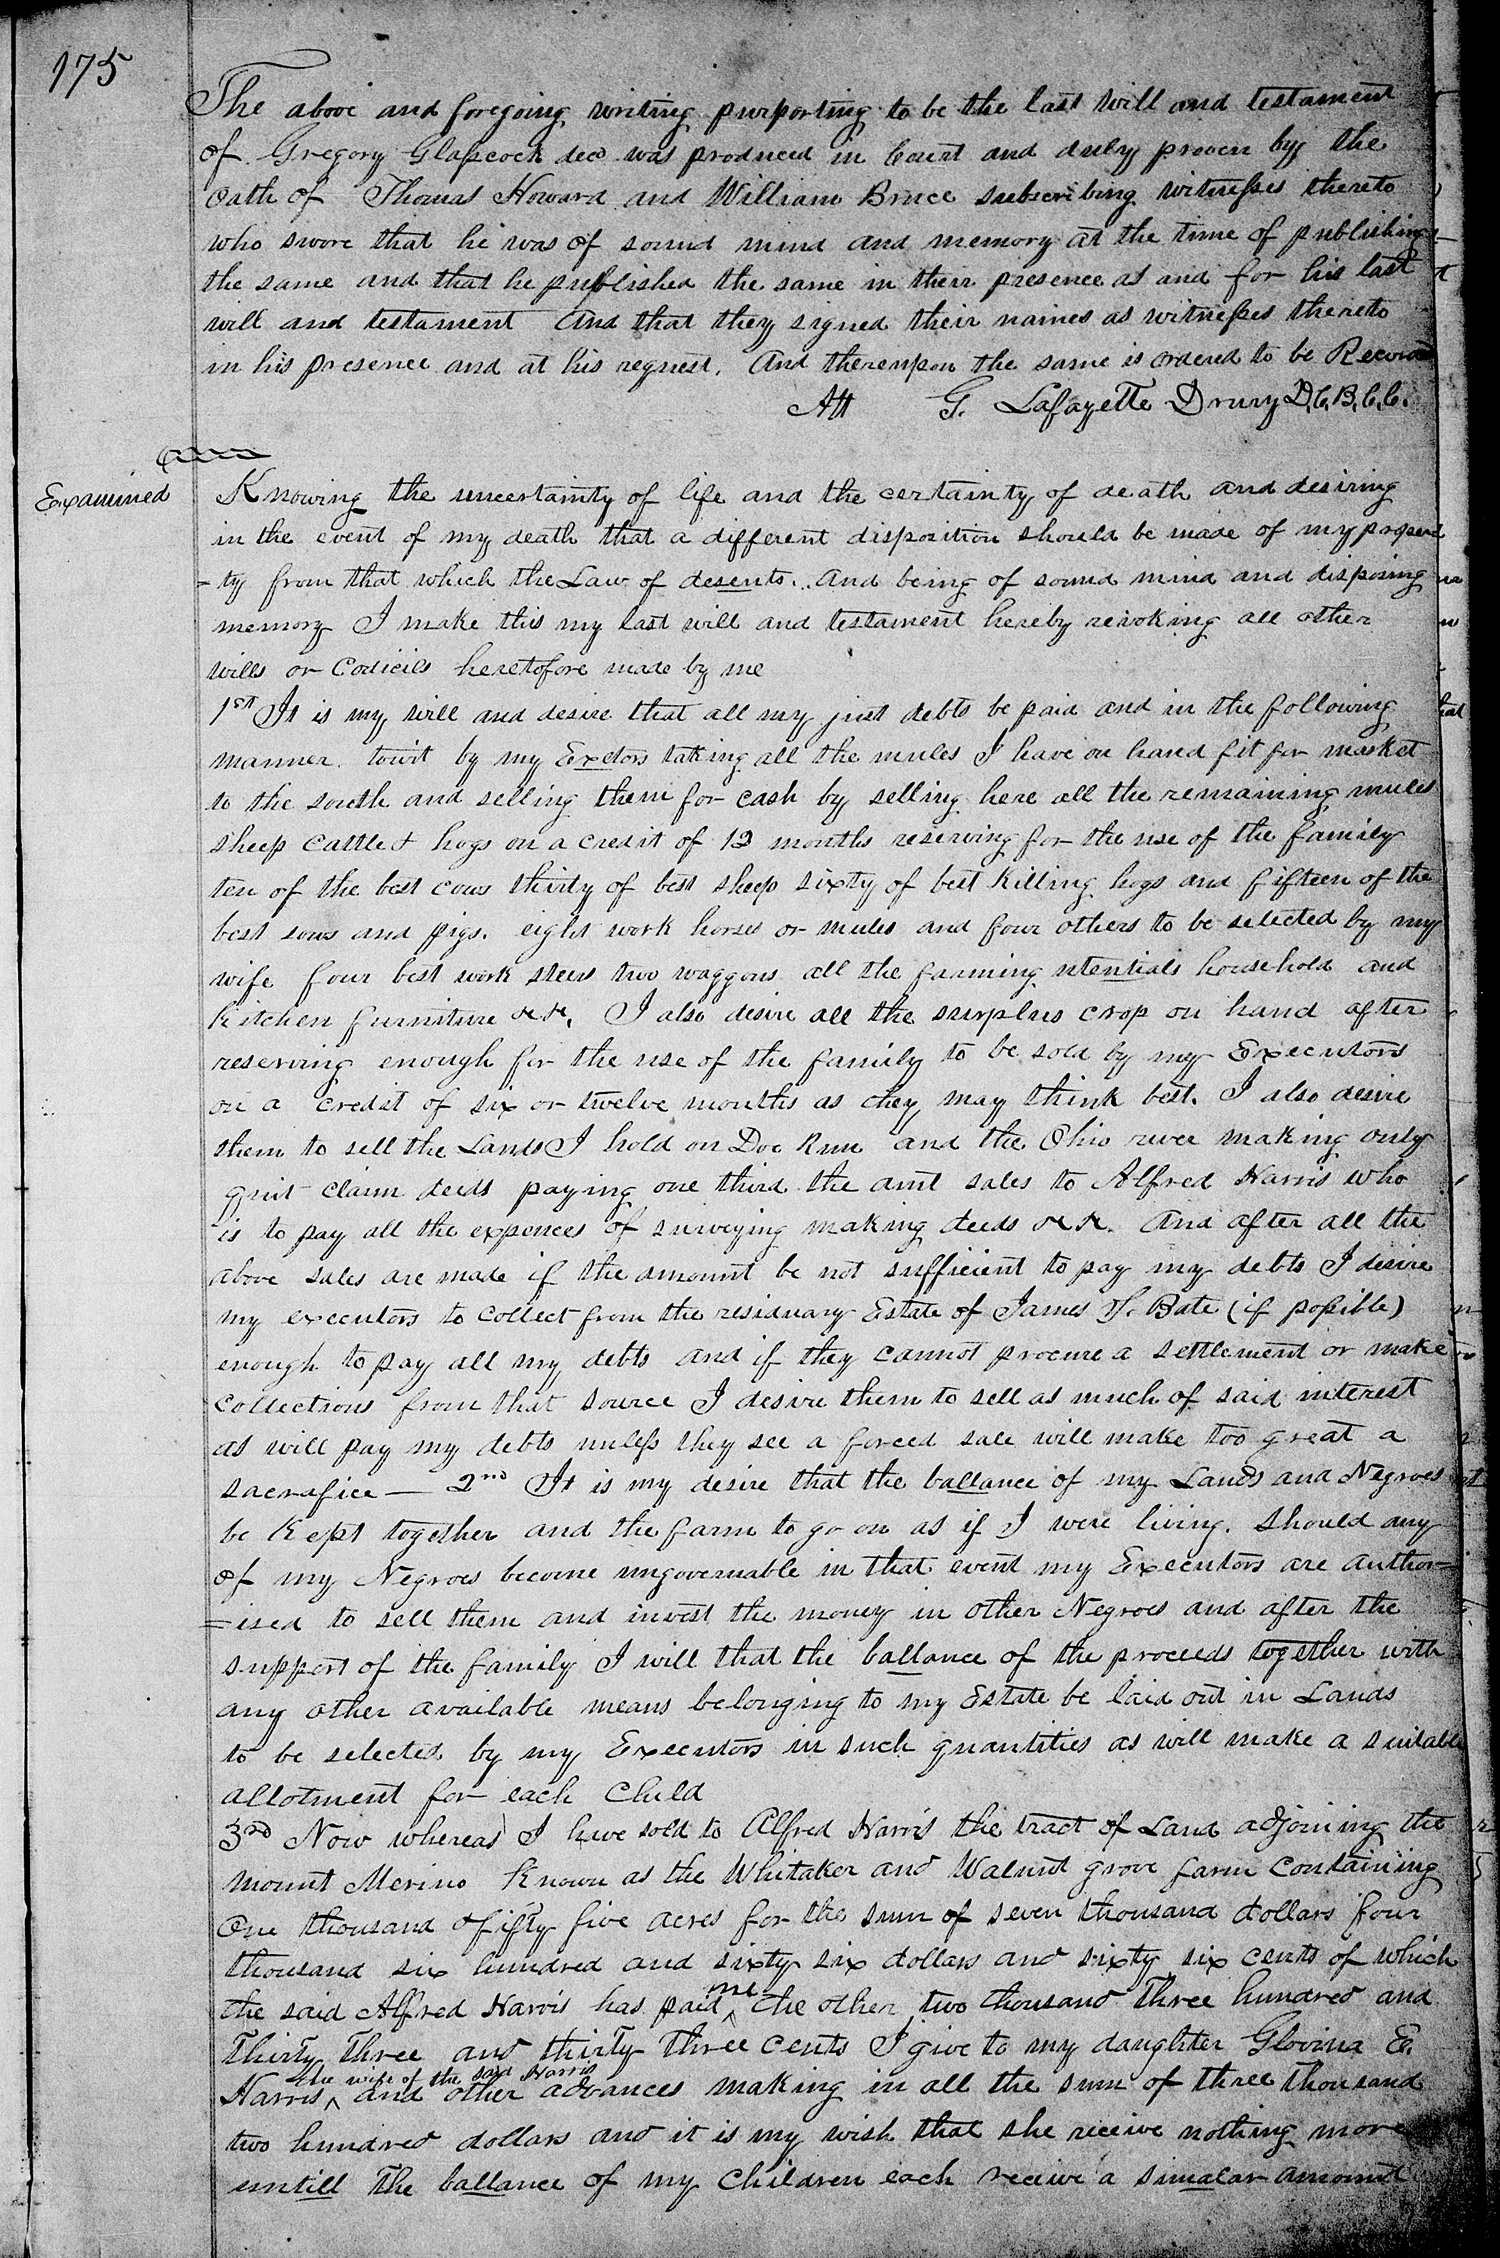 175
The above and foregoing writing purporting to be the last will and testament
of Gregory Glasscock decd was produced in Court and duly proven by the
oath of Thomas Howard and William Bruce subscribing witnesses thereto
who swore that he was of sound mind and memory at the time of publishing
the same and that he published the same in their presence as and for his last
will and testament And that they signed their names as witnesses thereto
in his presence and at his request. And thereupon the same is ordered to be Record
Att G. Lafayette Drury D.C.B.C.C.
Examined
Knowing the uncertainty of life and the certainty of death and desiring
in the event of my death that a different disposition should be made of my proper
-ty from that which the Law of desents. And being of sound mind and disposing
memory I make this my last will and testament hereby revoking all other
wills or Codicils heretofore made by me
1st It is my will and desire that all my just debts be paid and in the following
manner. towit by my Exctors taking all the mules I have on hand fit for market
to the south and selling them for cash by selling here all the remaining mules
sheep cattle & hogs on a credit of 12 months reserving for the use of the family
ten of the best cows thirty of best sheep sixty of best killing hogs and fifteen of the
best sows and pigs. eight work horses or mules and four others to be selected by my
wife four best work steers two waggons all the farming utentials household and
Kitchen furniture &c &c. I also desire all the surplus crop on hand after
reserving enough for the use of the family to be sold by my Executors
on a credit of six or twelve months as they may think best. I also desire
them to sell the Lands I hold on Doe Run and the Ohio river making only
quit claim deeds paying one third the amt sales to Alfred Harris who
is to pay all the expences of surveying making deeds &c &c. And after all the
above sales are made if the amount be not sufficient to pay my debts I desire
my executors to collect from the residuary Estate of James S. Bate (if possible)
enough to pay all my debts and if they cannot procure a settlement or make
collections from that source I desire them to sell as much of said interest
as will pay my debts unless they see a forced sale will make too great a
sacrafice — 2nd It is my desire that the ballance of my Lands and Negroes
be Kept together and the farm to go on as if I were living. should any
of my Negroes become ungovernable in that event my Executors are author=
=ised to sell them and invest the money in other Negroes and after the
support of the family I will that the ballance of the proceeds together with
any other available means belonging to my Estate be laid out in Lands
to be selected by my Executors in such quantities as will make a suitable
allotment for each Child
3rd Now whereas I have sold to Alfred Harris the tract of Land adjoining the
mount Merino Known as the Whitaker and Walnut grove farm containing
One thousand & fifty five acres for the sum of seven thousand dollars four
thousand six hundred and sixty six dollars and sixty six cents of which
the said Alfred Harris has paid me the other two thousand three hundred and
thirty three and thirty three cents I give to my daughter Glovina E.
Harris the wife of the said Harris and other advances making in all the sum of three thousand
two hundred dollars and it is my wish that she receive nothing more
untill the ballance of my children each receive a simalar amount